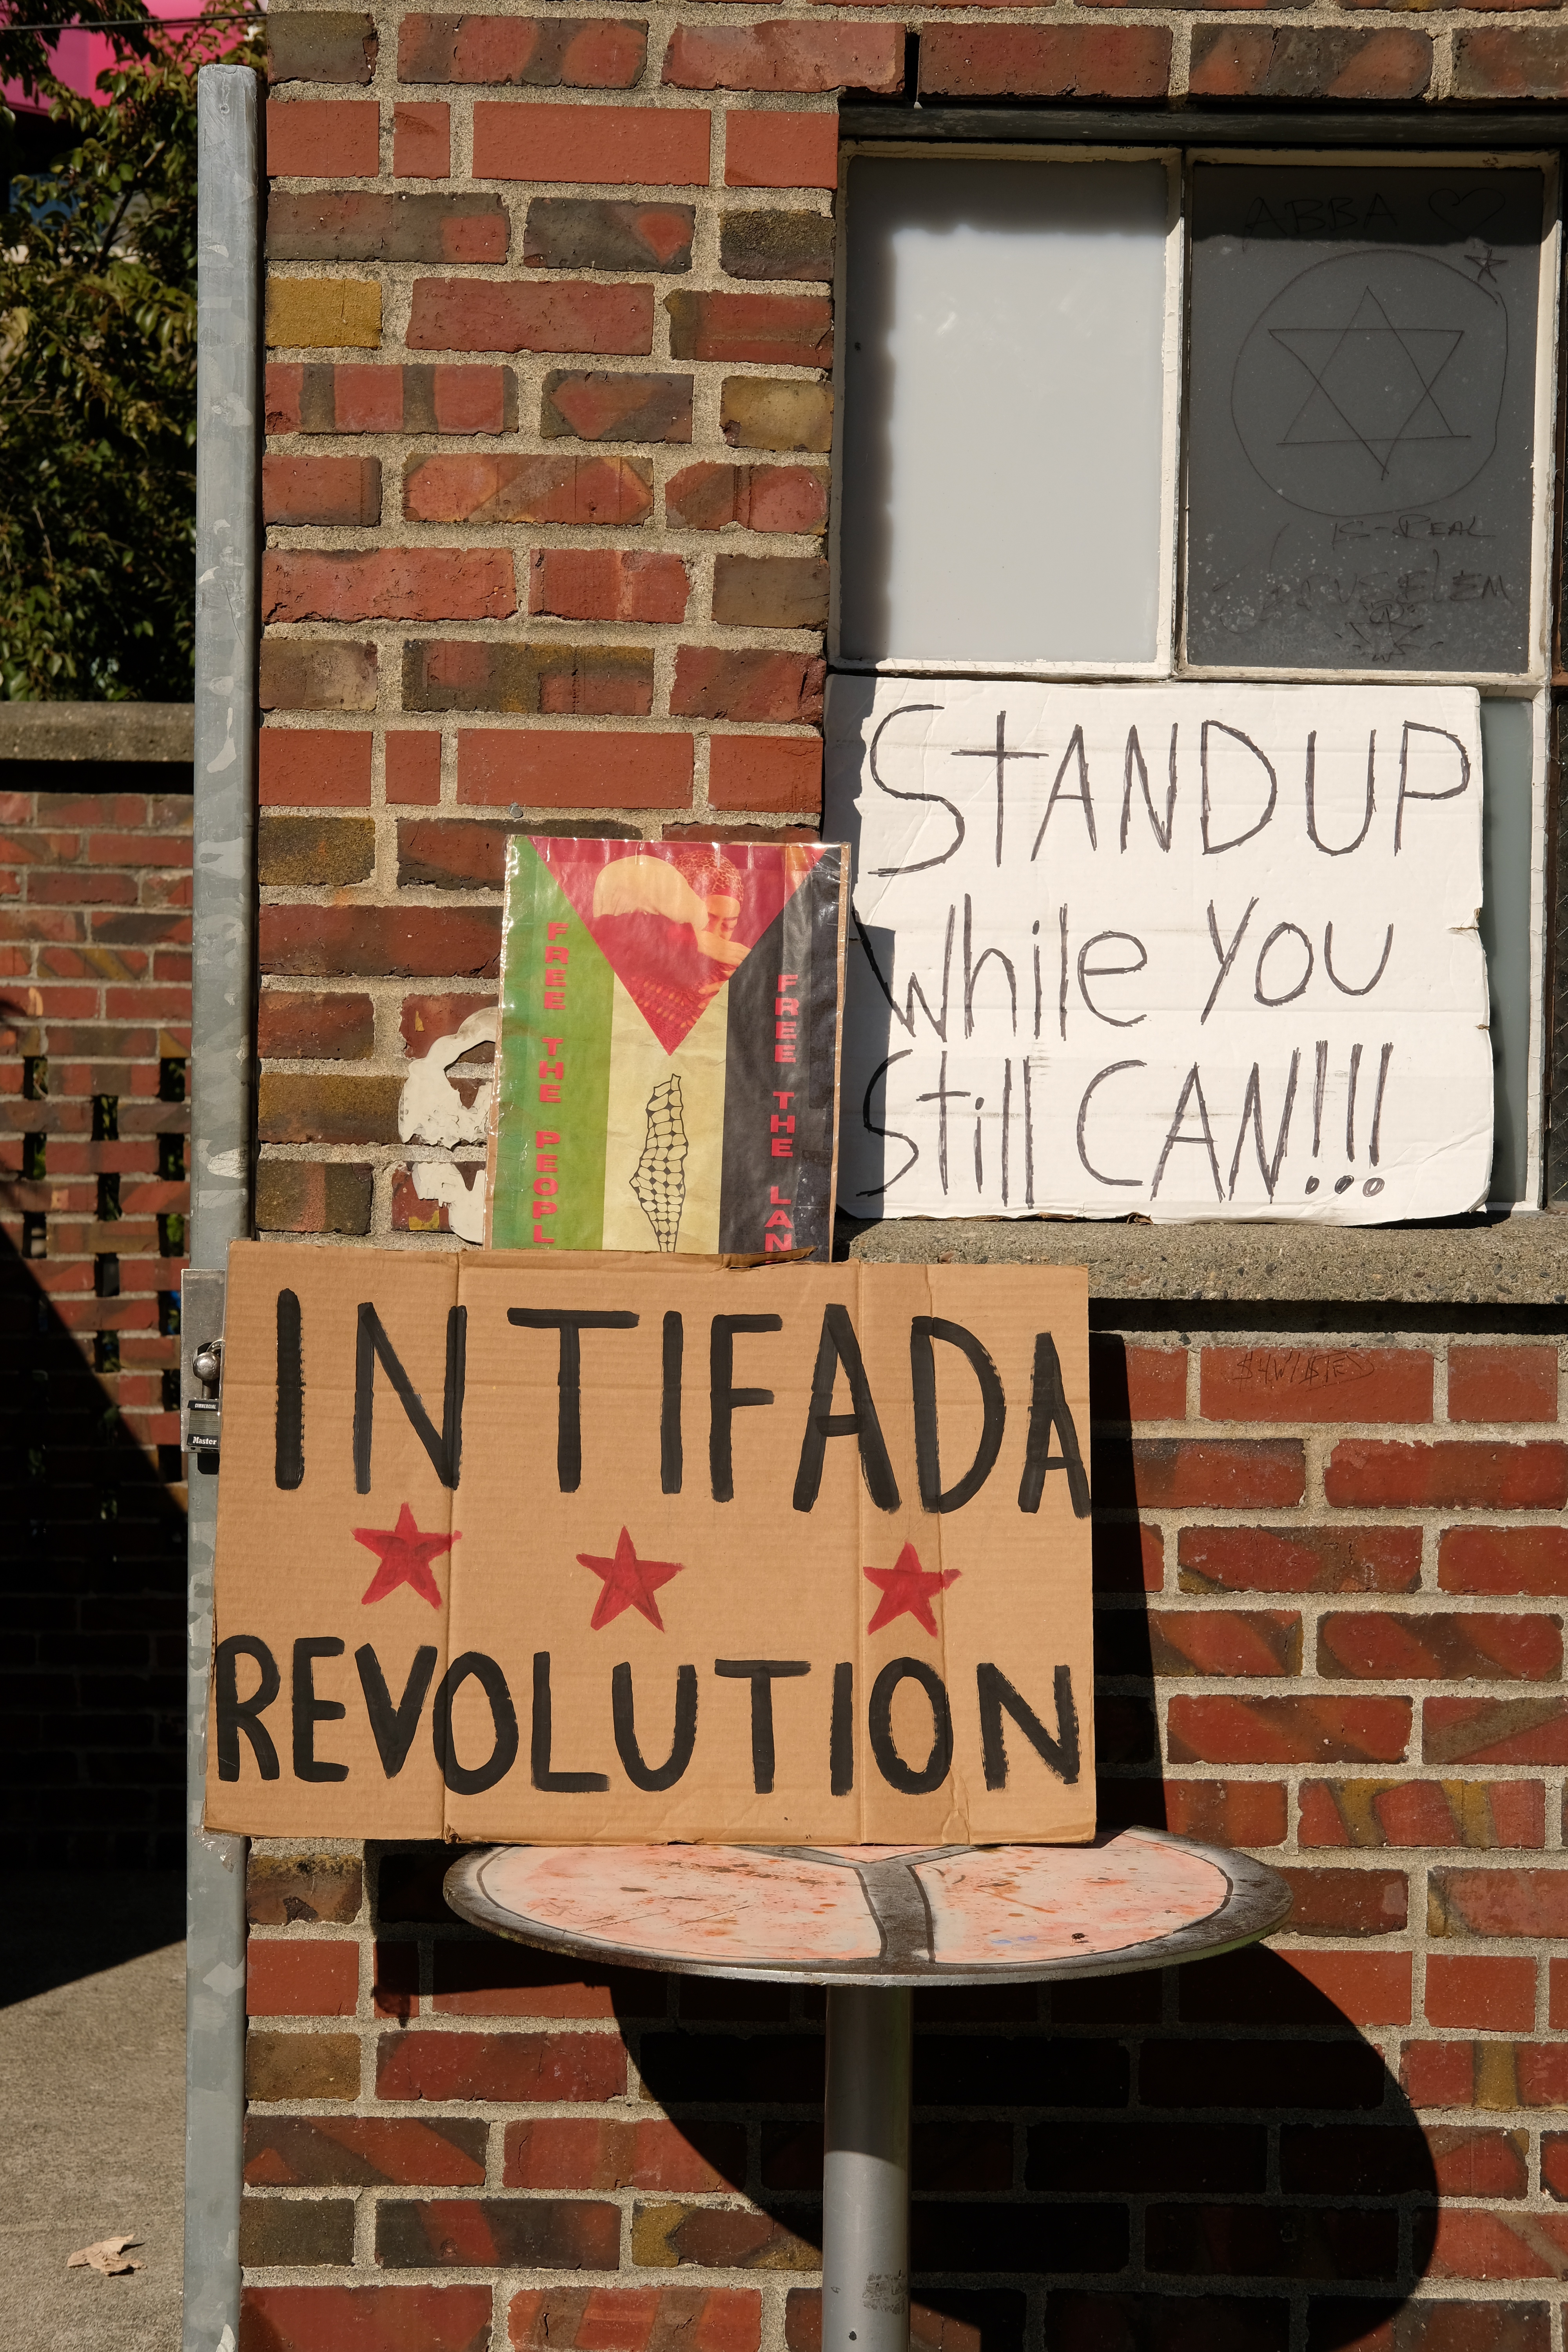 ABBA
IS-REAL
STAND UP
while YOU
Still CAN!!!
FREE THE PEOPL
FREE THE LAN
INTIFADA
REVOLUTION
Master